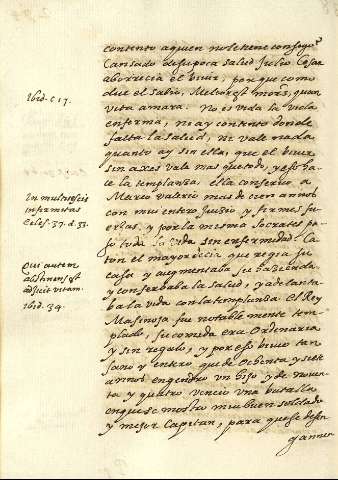 contento aquien no le tiene consigo?
Cansado de su poca salud Julio Cesar
aborrecia el bivir, porque como
dice el sabio, Melior est mors, quam
vita amara. No es vida la vida
enferma, ni ay contento donde
falta la salud, ni vale nada
quanto ay sin ella, que el bivir
sin axes vale mas que todo, y esso ha-
ce la templanza. ella conservo a
Marco valerio mas de cien annos
con muy entero juizio, y firmes fu-
erzas, y por la misma Socrates pa-
so toda la vida sin enfermedad. Ca-
ton el mayor decia que regia su
casa y augmentaba su hazienda,
y conservaba la salud, y adelanta-
ba la vida con la templanza. el Rey
Masinosa fue notablemente tem-
plado, su comida era Ordenaria
y sin regalo, y por esso bivio tan
sano y entero, que de Ochenta y siete
annos engendro un hijo y de noven-
ta y quatro vencio una batalla
en que se mostro muy buen soldado
y mejor Capitan, para que se desen
gannen
Ibid. c 17.
In multis escis
infirmitas
Eccles. 37. d. 33.
Qui autem
abstinens est
adjicit vitam.
Ibid. 34.